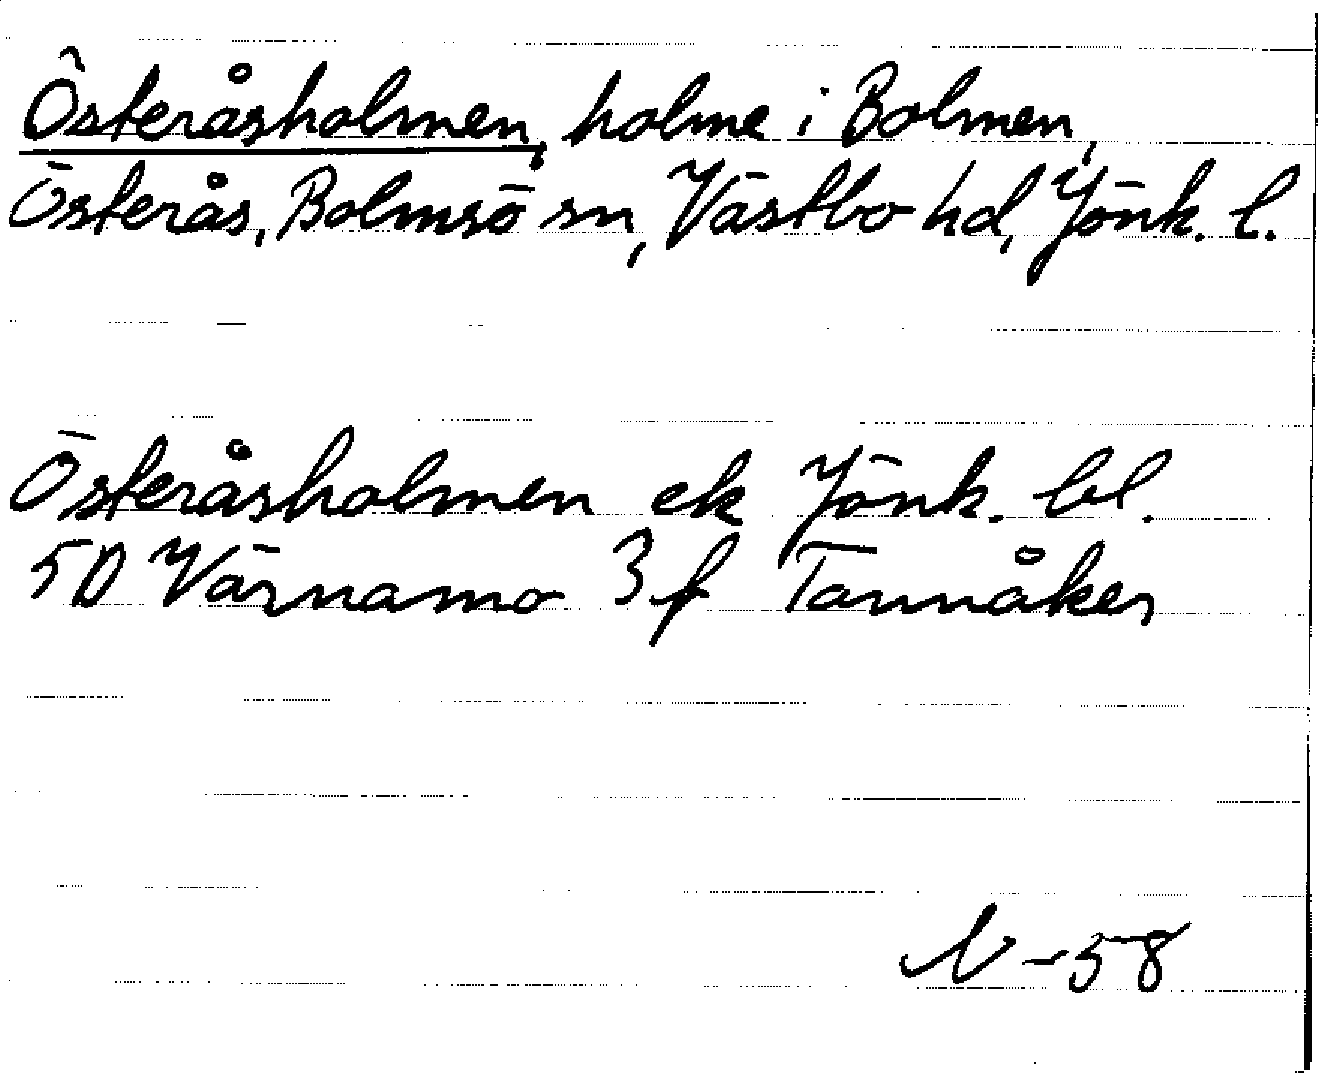 Österåsholmen, holme i Bolmen,
Österås, Bolmsö sn, Västbo hd, Jönk. l.
Österåsholmen ek Jönk. bl.
5D Värnamo 3f Tannåker
N-58